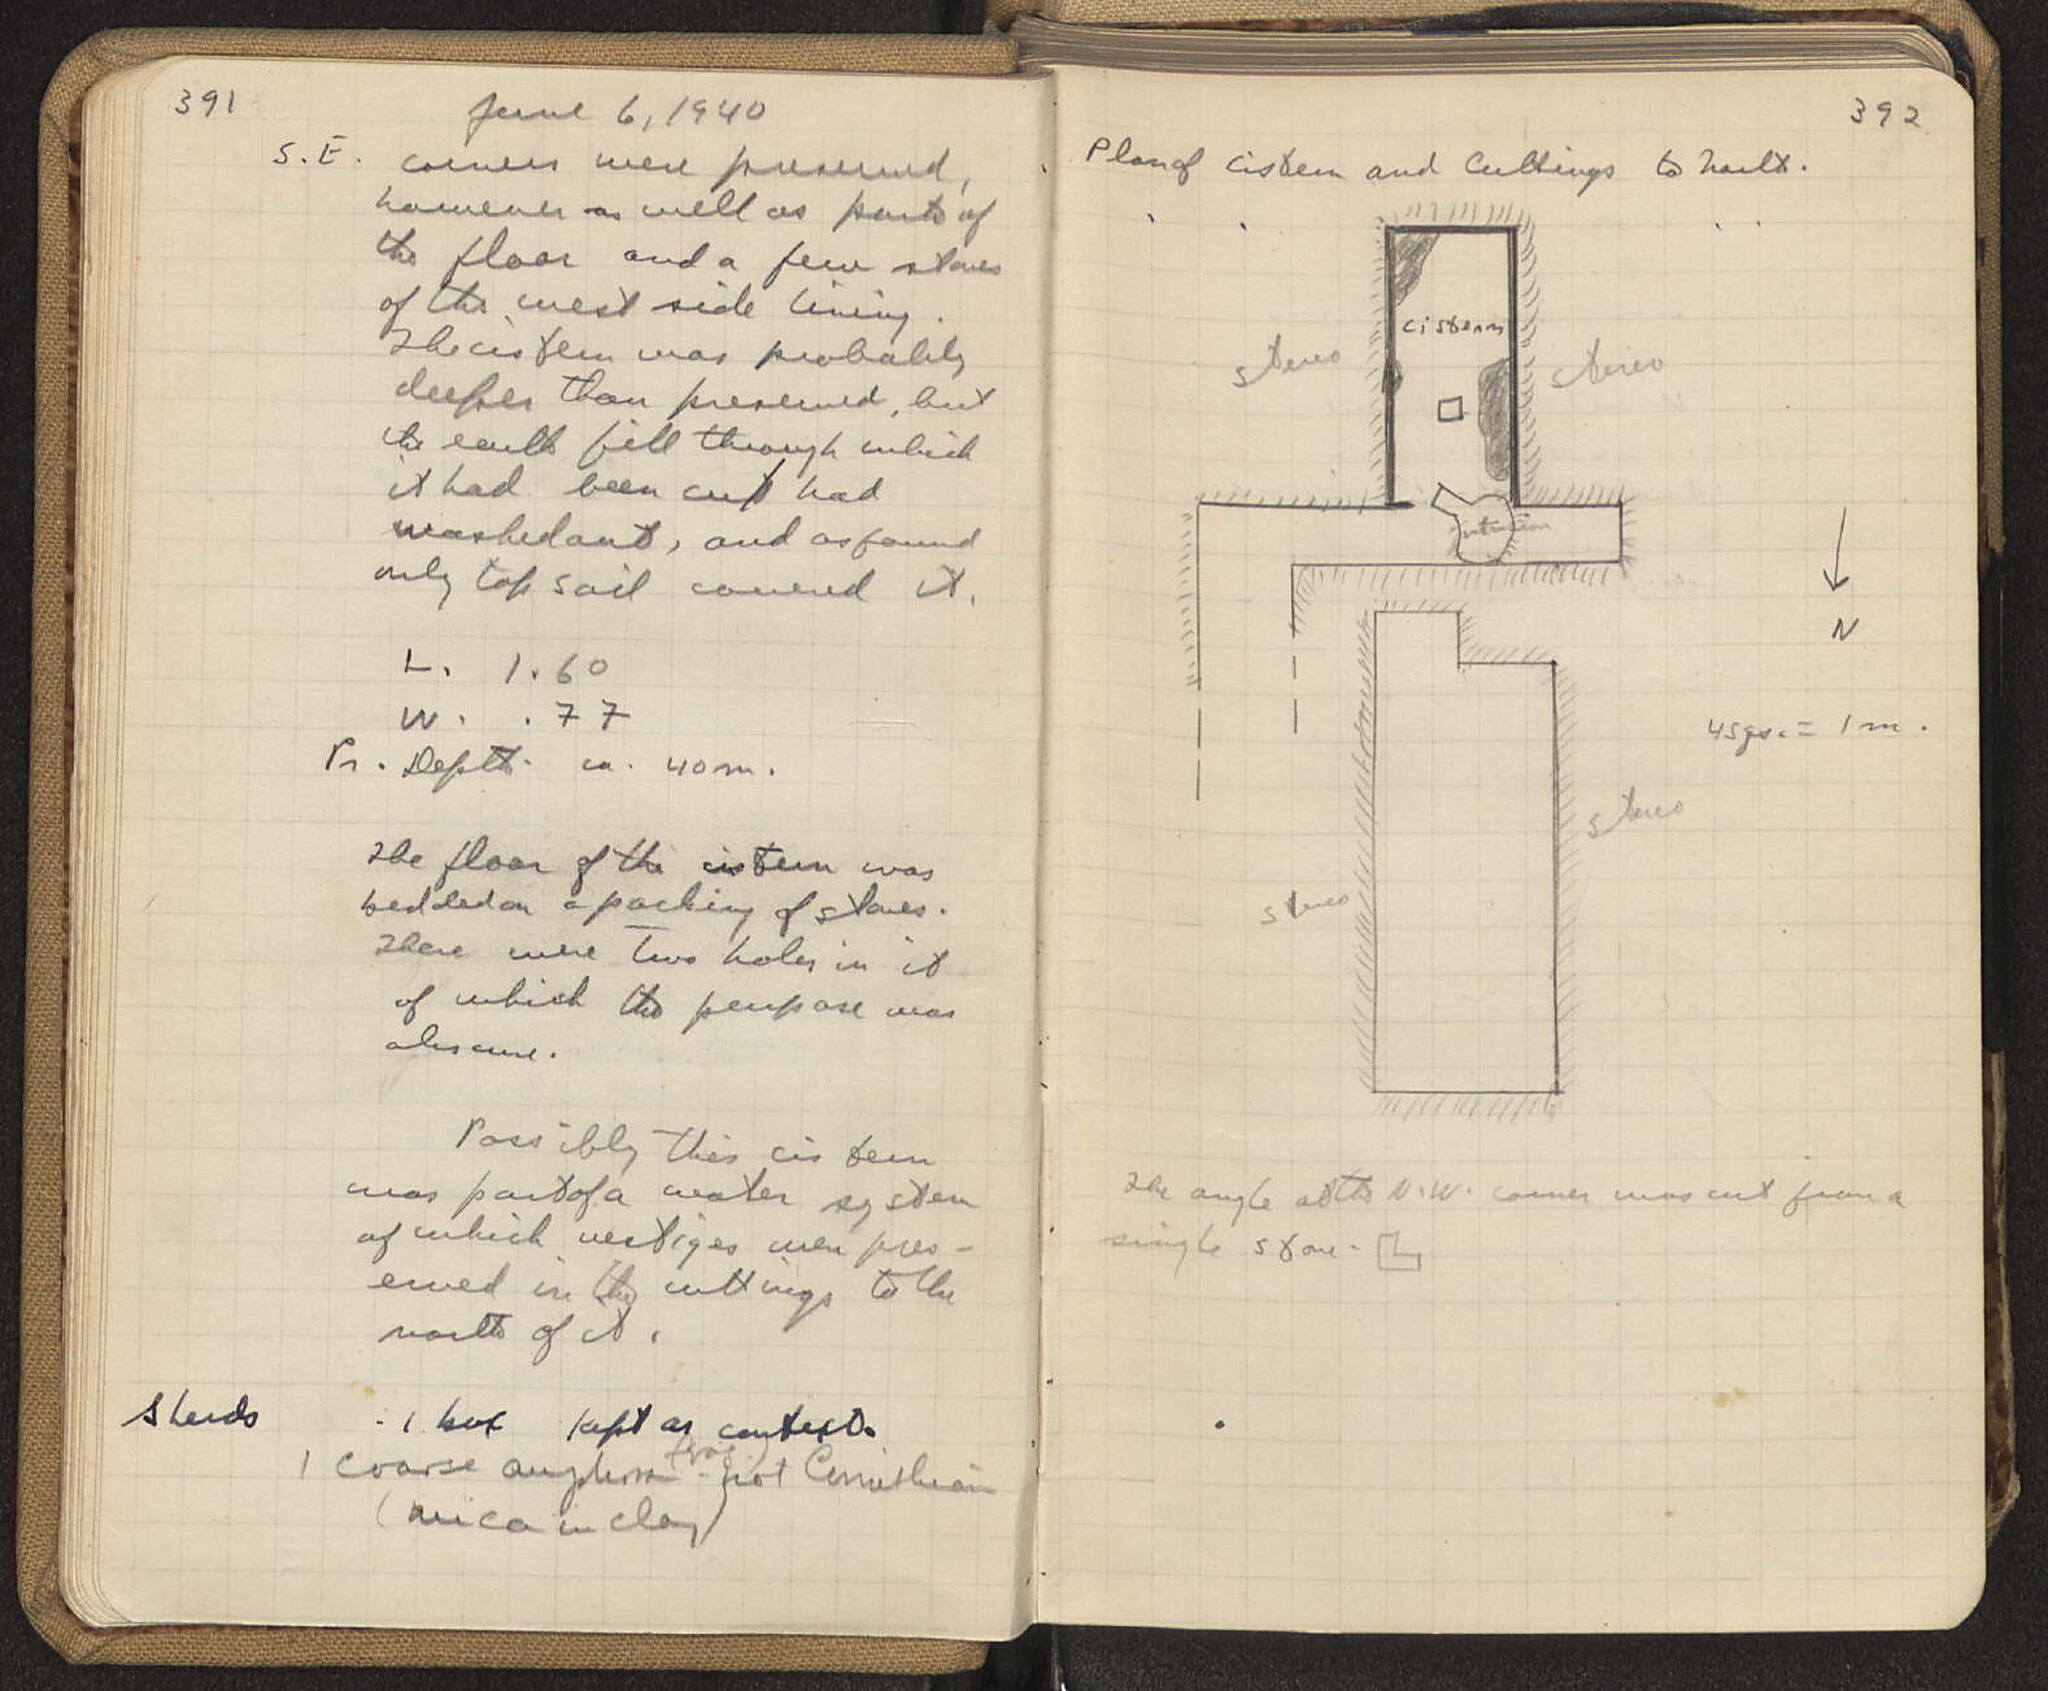 391
June 6, 1940
S.E. corners were preserved,
however as well as parts of
the floor and a few stones
of the west side lining.
The cistern was probably
deeper than preserved, but
the earth fill through which
it had been cut had
washed out, and as found
only top soil covered it.
L. 1.60
W. .77
Pr. Depth ca. 40 m.
The floor of the cistern was
bedded on a packing of stones.
There were two holes in it
of which the purpose was
obscure.
Possibly this cistern
was part of a water system
of which vestiges were pres-
erved in the cuttings to the
north of it.
Sherds - 1 box kept as context.
1 coarse amphora (frag.) - not Corinthian
(mica in clay)
392
Plan of cistern and cuttings to north.
cistern
stereo
stereo
intrusion
N
4 sqs. = 1 m.
stereo
stereo
The angle at the N.W. corner was cut from a
single stone.